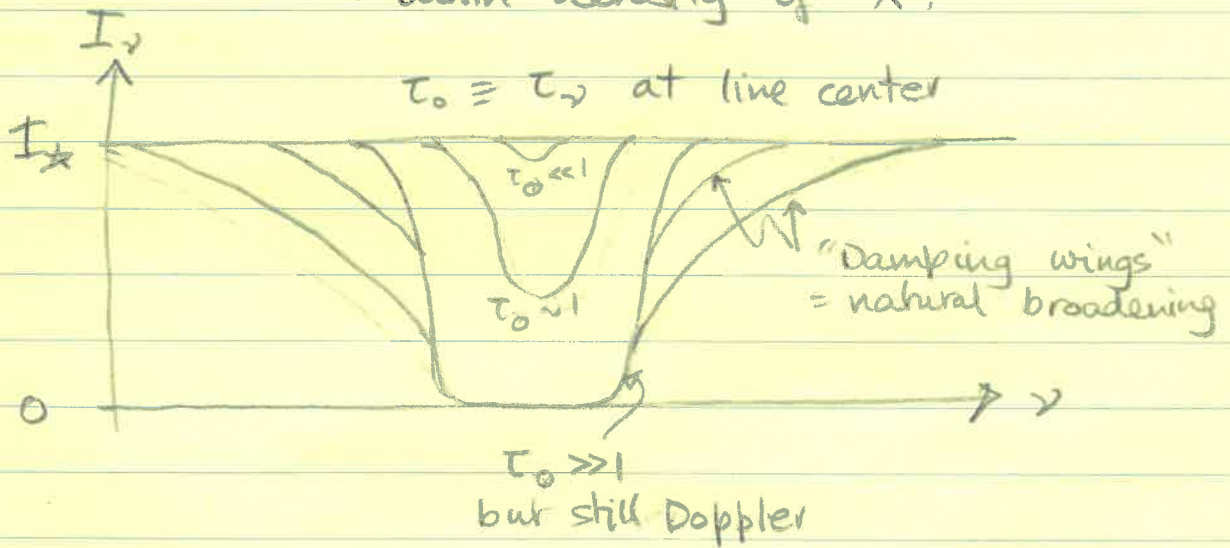 of X.
I_ν
τ₀ ≡ τ_ν at line center
I_*
τ₀ <<1
τ₀ ~1
"Damping wings"
= natural broadening
0
ν
τ₀ >>1
but still Doppler